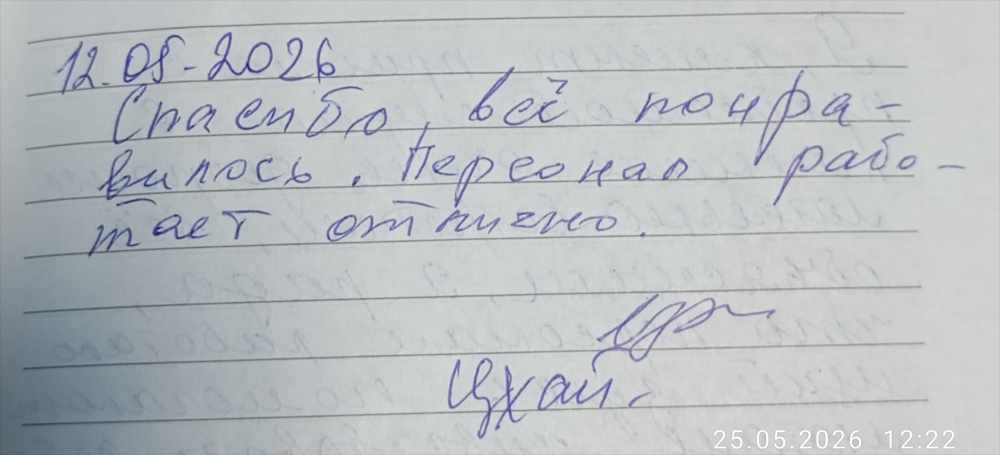 12.05-2026
Спасибо, всё понра-
вилось. Персонал рабо-
тает отлично.
Цхай.
25.05.2026 12:22